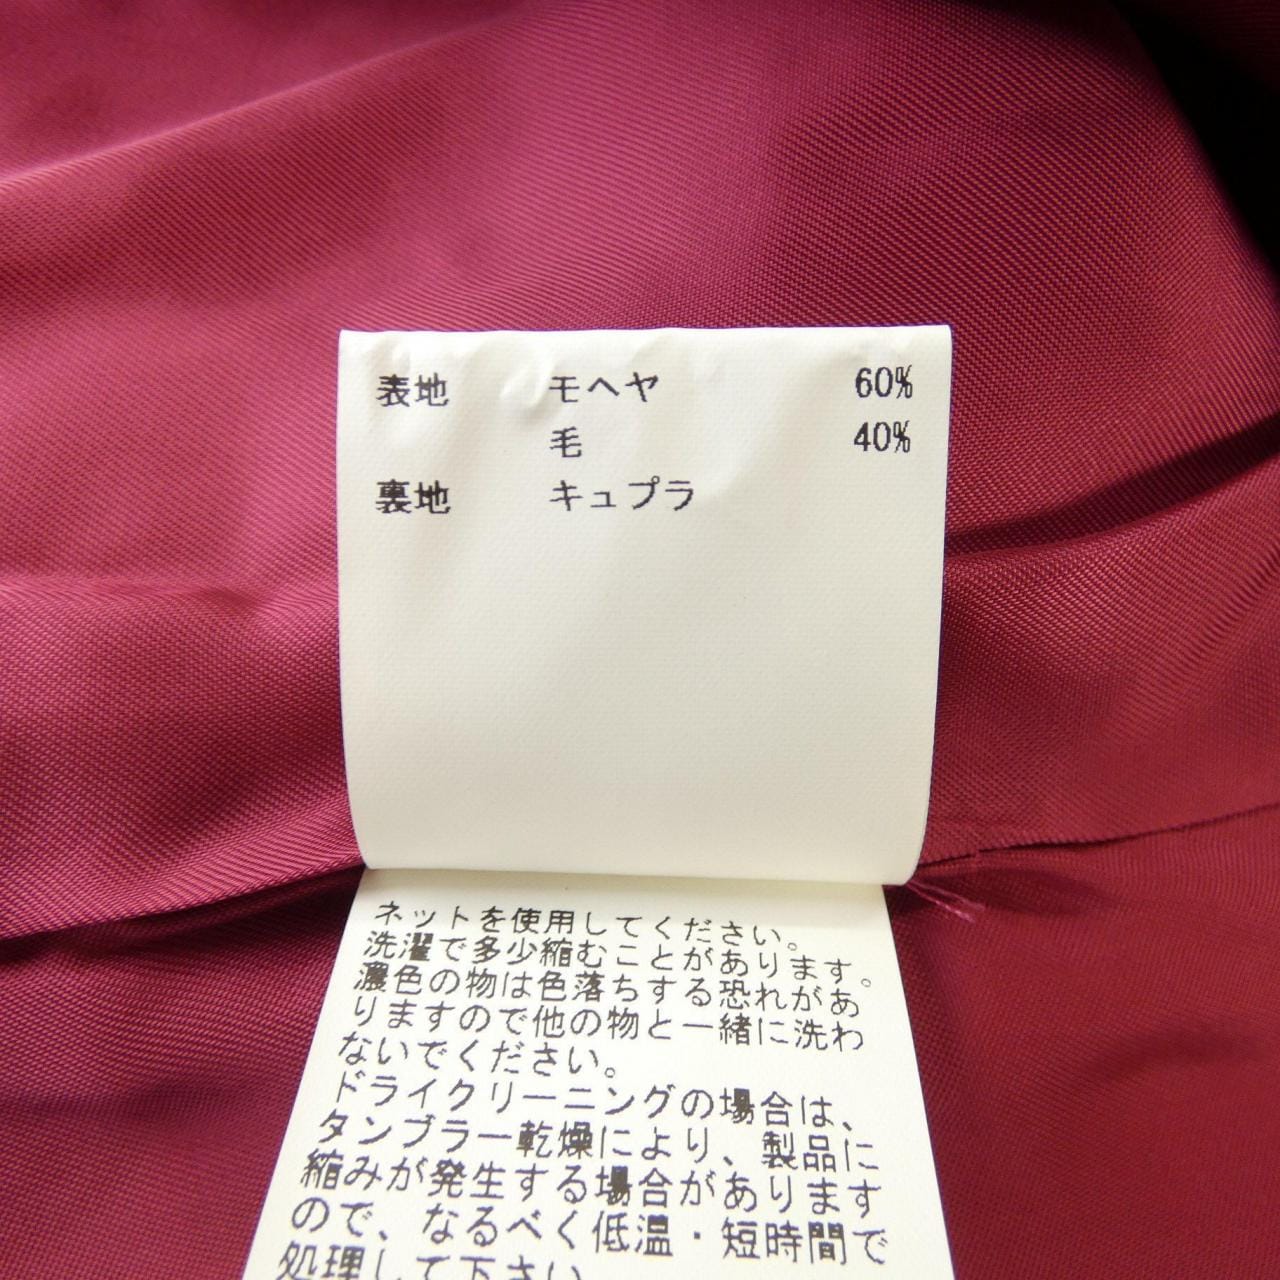 表地 モヘヤ 60%
毛 40%
裏地 キュプラ
ネットを使用してください。
洗濯で多少縮むことがあります。
濃色の物は色落ちする恐れがあ
りますので他の物と一緒に洗わ
ないでください。
ドライクリーニングの場合は、
タンブラー乾燥により、製品に
縮みが発生する場合があります
ので、なるべく低温・短時間で
処理して下さい